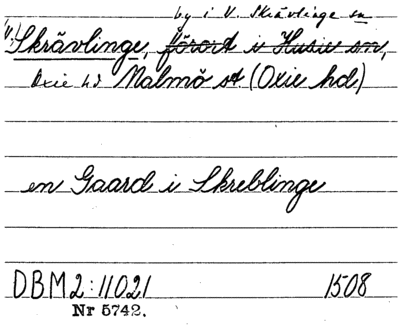 by i V. Skrävlinge sn
V. Skrävlinge, förort i Husie sn,
Oxie hd Malmö st (Oxie hd)
en Gaard i Skreblinge
DBM 2:11021 1508
Nr 5742.